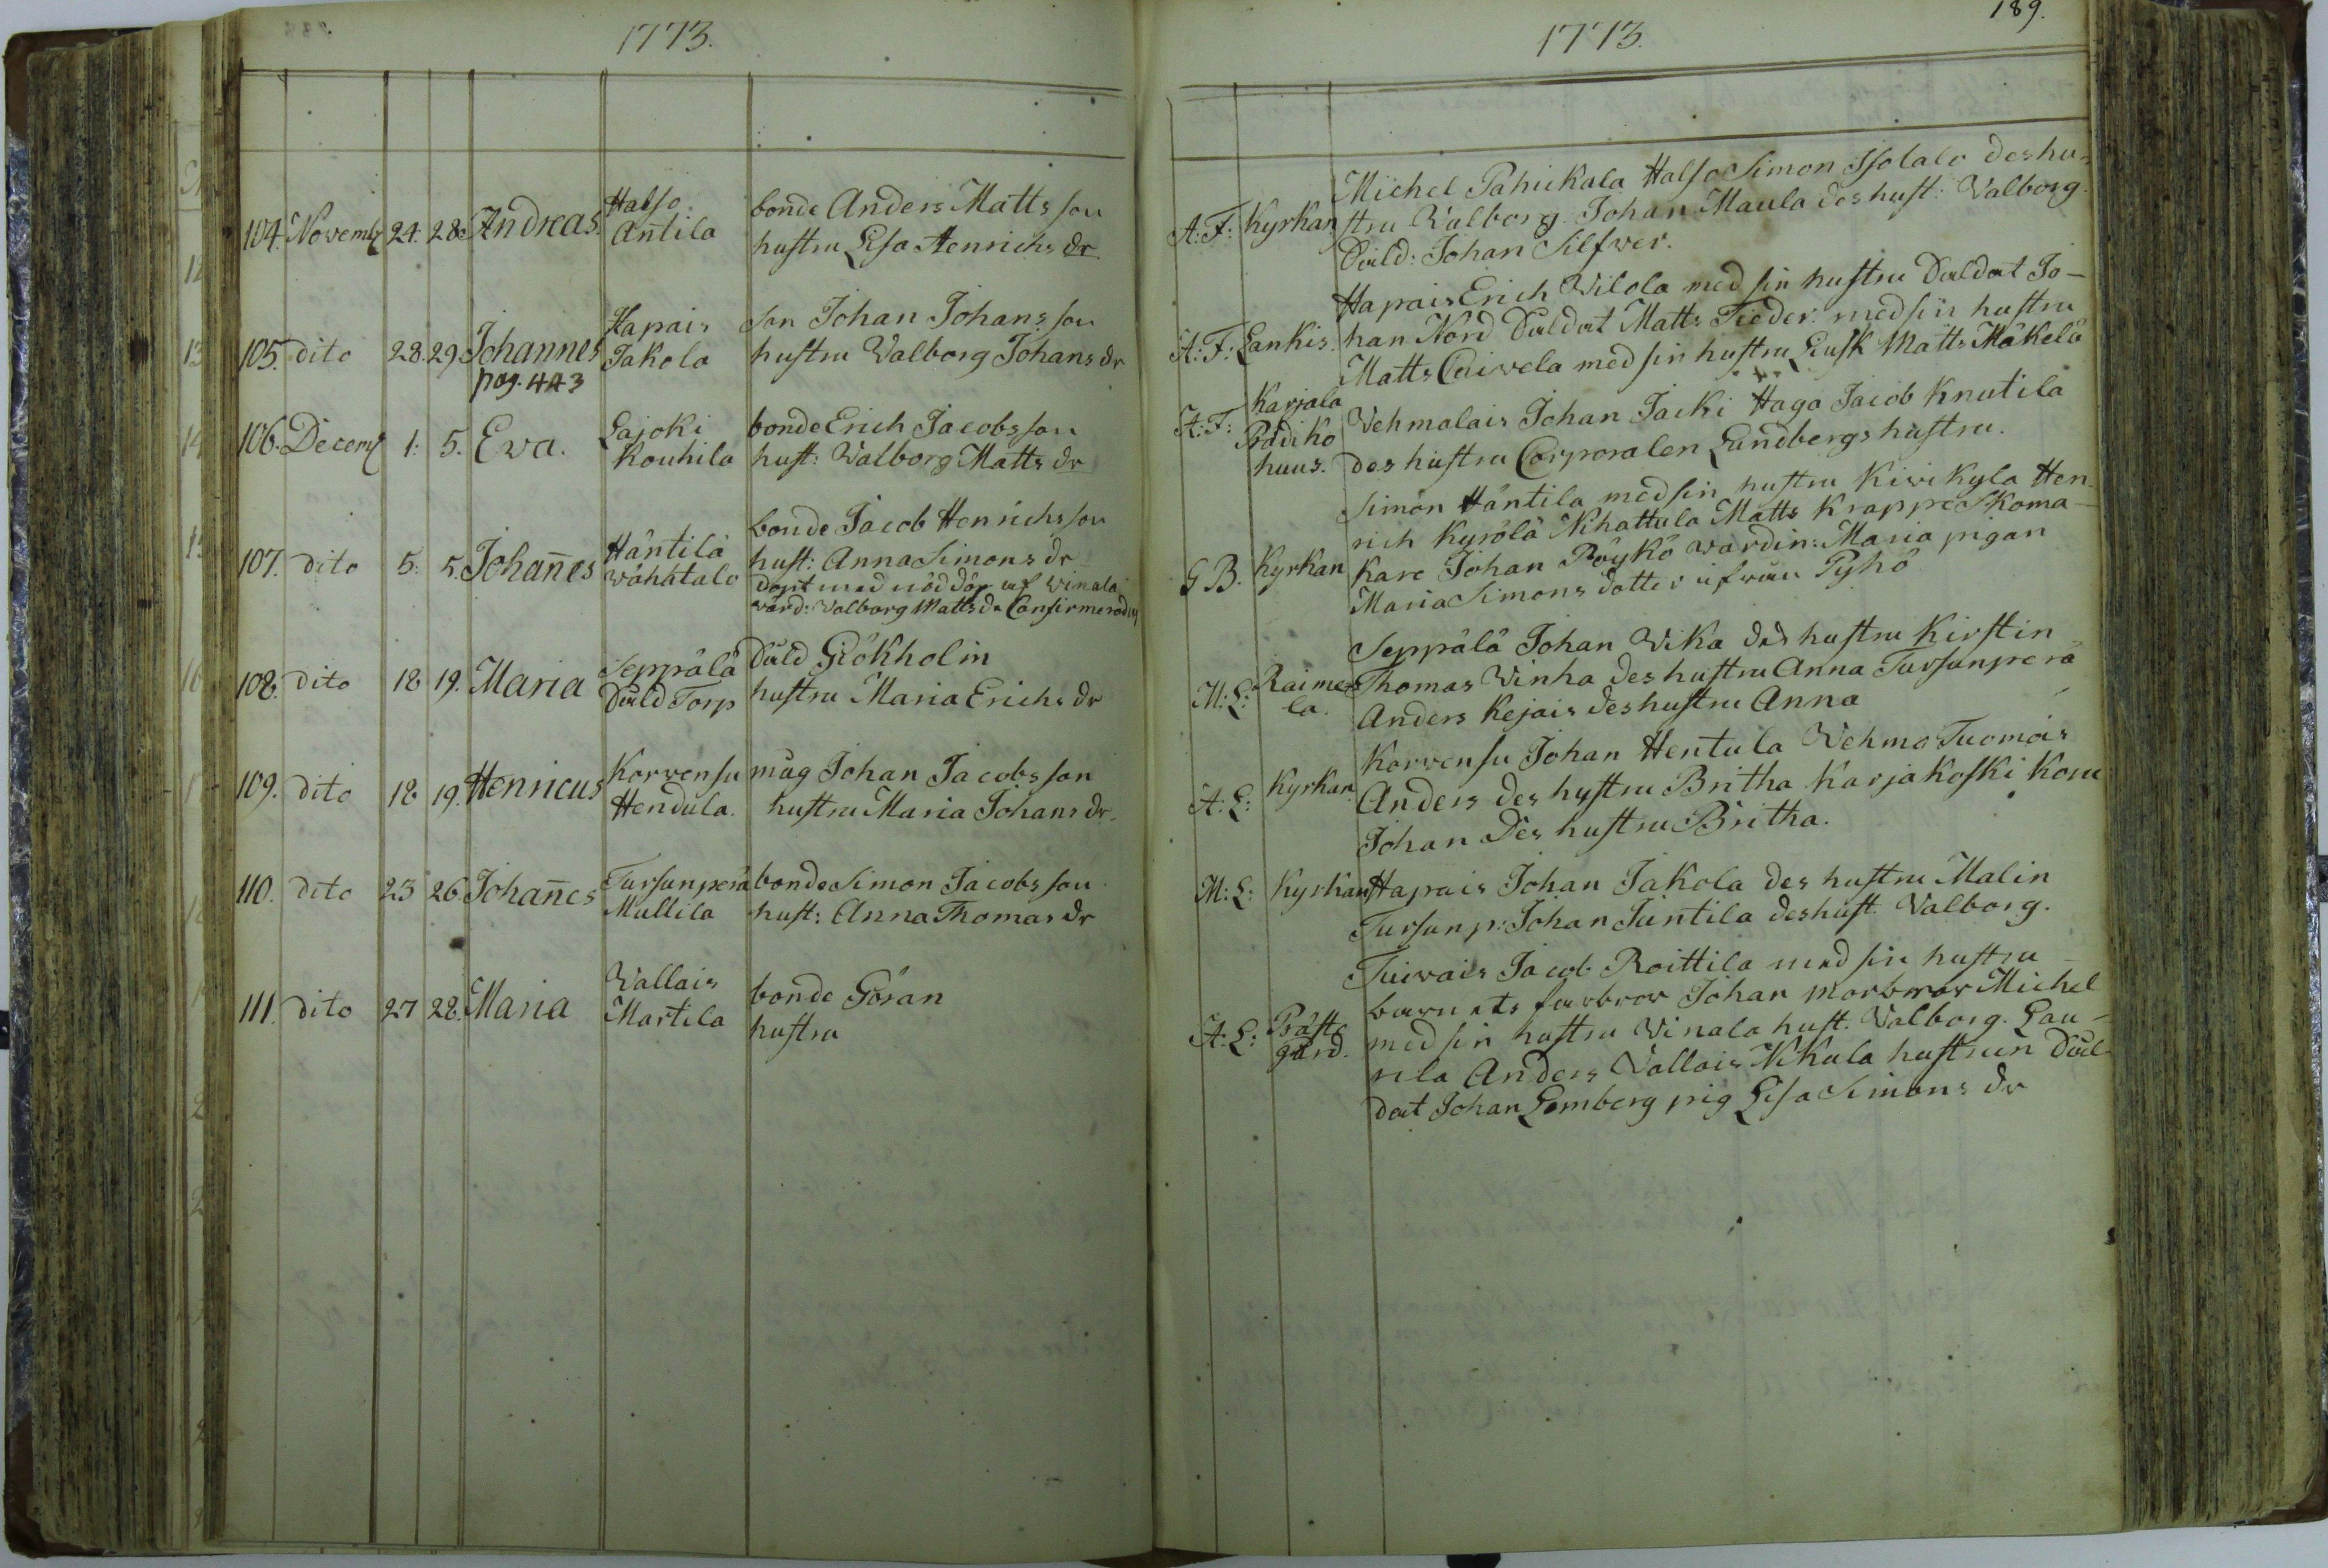 1773.
104. Novemb 24. 28. Andreas. Halso Antila bonde Anders Matts son
hustru Lisa Henrichs dr
105. dito 28. 29. Johannes Hapais Jakola Son Johan Johans son
pag. 443 hustru Valborg Johans dr
106. Decemb 1. 5. Eva. Lajoki Kouhila bonde Erich Jacobs son
hust: Valborg Matts dr
107. dito 5. 5. Johan̄es Häntilä wähätalo bonde Jacob Henrichs son
hust: Anna Simons dr
döpt med nöd döp af Vinala
värd: Valborg Matts dr Confirmerad
108. dito 18 19. Maria Seppälä Dald Torp Dald Glökholm
hustru Maria Erichs dr
109. dito 18 19. Henricus Korvensu Hendula. måg Johan Jacobs son
hustru Maria Johans dr.
110. dito 23 26 Johan̄es Tursunperä Mullila bonde Simon Jacobs son
hust: Anna Thomas dr
111. dito 27 28. Maria Vallais Martila bonde Göran
hustru
1773.
189.
Michel Pahickala Halso Simon Isolalo des hu-
A: F: Kyrkan stru Valborg. Johan Maula des hust: Valborg
Dald: Johan Silfwer.
Hapais Erich Vilola med sin hustru Daldat Jo-
A: F: Lankis. han Nord Daldat Matts Fieder. med sin hustru
Matts Caivela med sin hustru Matts Mäkelä
A: F: Karjala Prädiko huus. Vehmalais Johan Jacki Haga Jacob Knutila
des hustru Corporalen Lundbergs hustru.
Simon Häntila med sin hustru Kivikyla Hen-
rich Kyrölä Nihattula Matts Krappe Skoma-
G B. Kyrkan Kare Johan Pöykö wärdin: Maria pigan
Maria Simons dotter ifrån Pyhö
Seppälä Johan Vika des hustru Kirstin
M: L: Raimela. Thomas Vinha des hustru Anna Tursunperä
Anders Kejais des hustru Anna
Korvensu Johan Hentula Vehmo Tuomois
A: L: Kyrkan. Anders des hustru Britha Karjakoski Konu
Johan Des hustru Britha.
M: L: Kyrkan Hapais Johan Jakola des hustru Malin
Tursunp: Johan Juntila des hust. Valborg.
Tuivais Jacob Roittila med sin hustru
barnets farbror Johan morbror Michel
A: L: Prästgård. med sin hustru Vinala hust. Valborg. Lau-
rila Anders Vallais Nikula hustrun Dal-
dat Johan Lemberg pig Lisa Simons dr